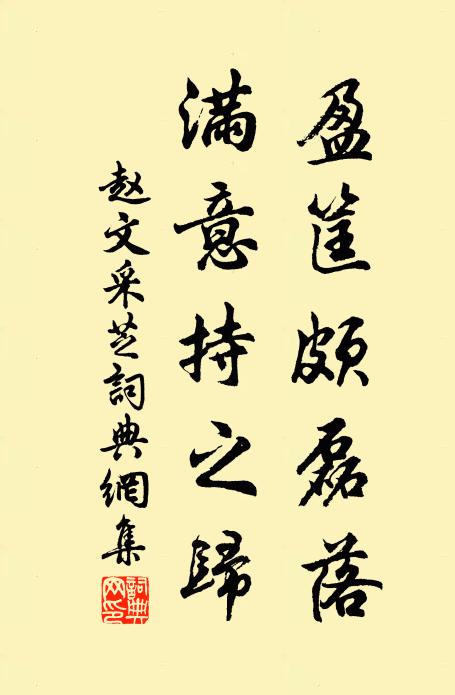 盈筐頗磊落
滿意持之歸
赵文采芝詞典網集
詞典网印